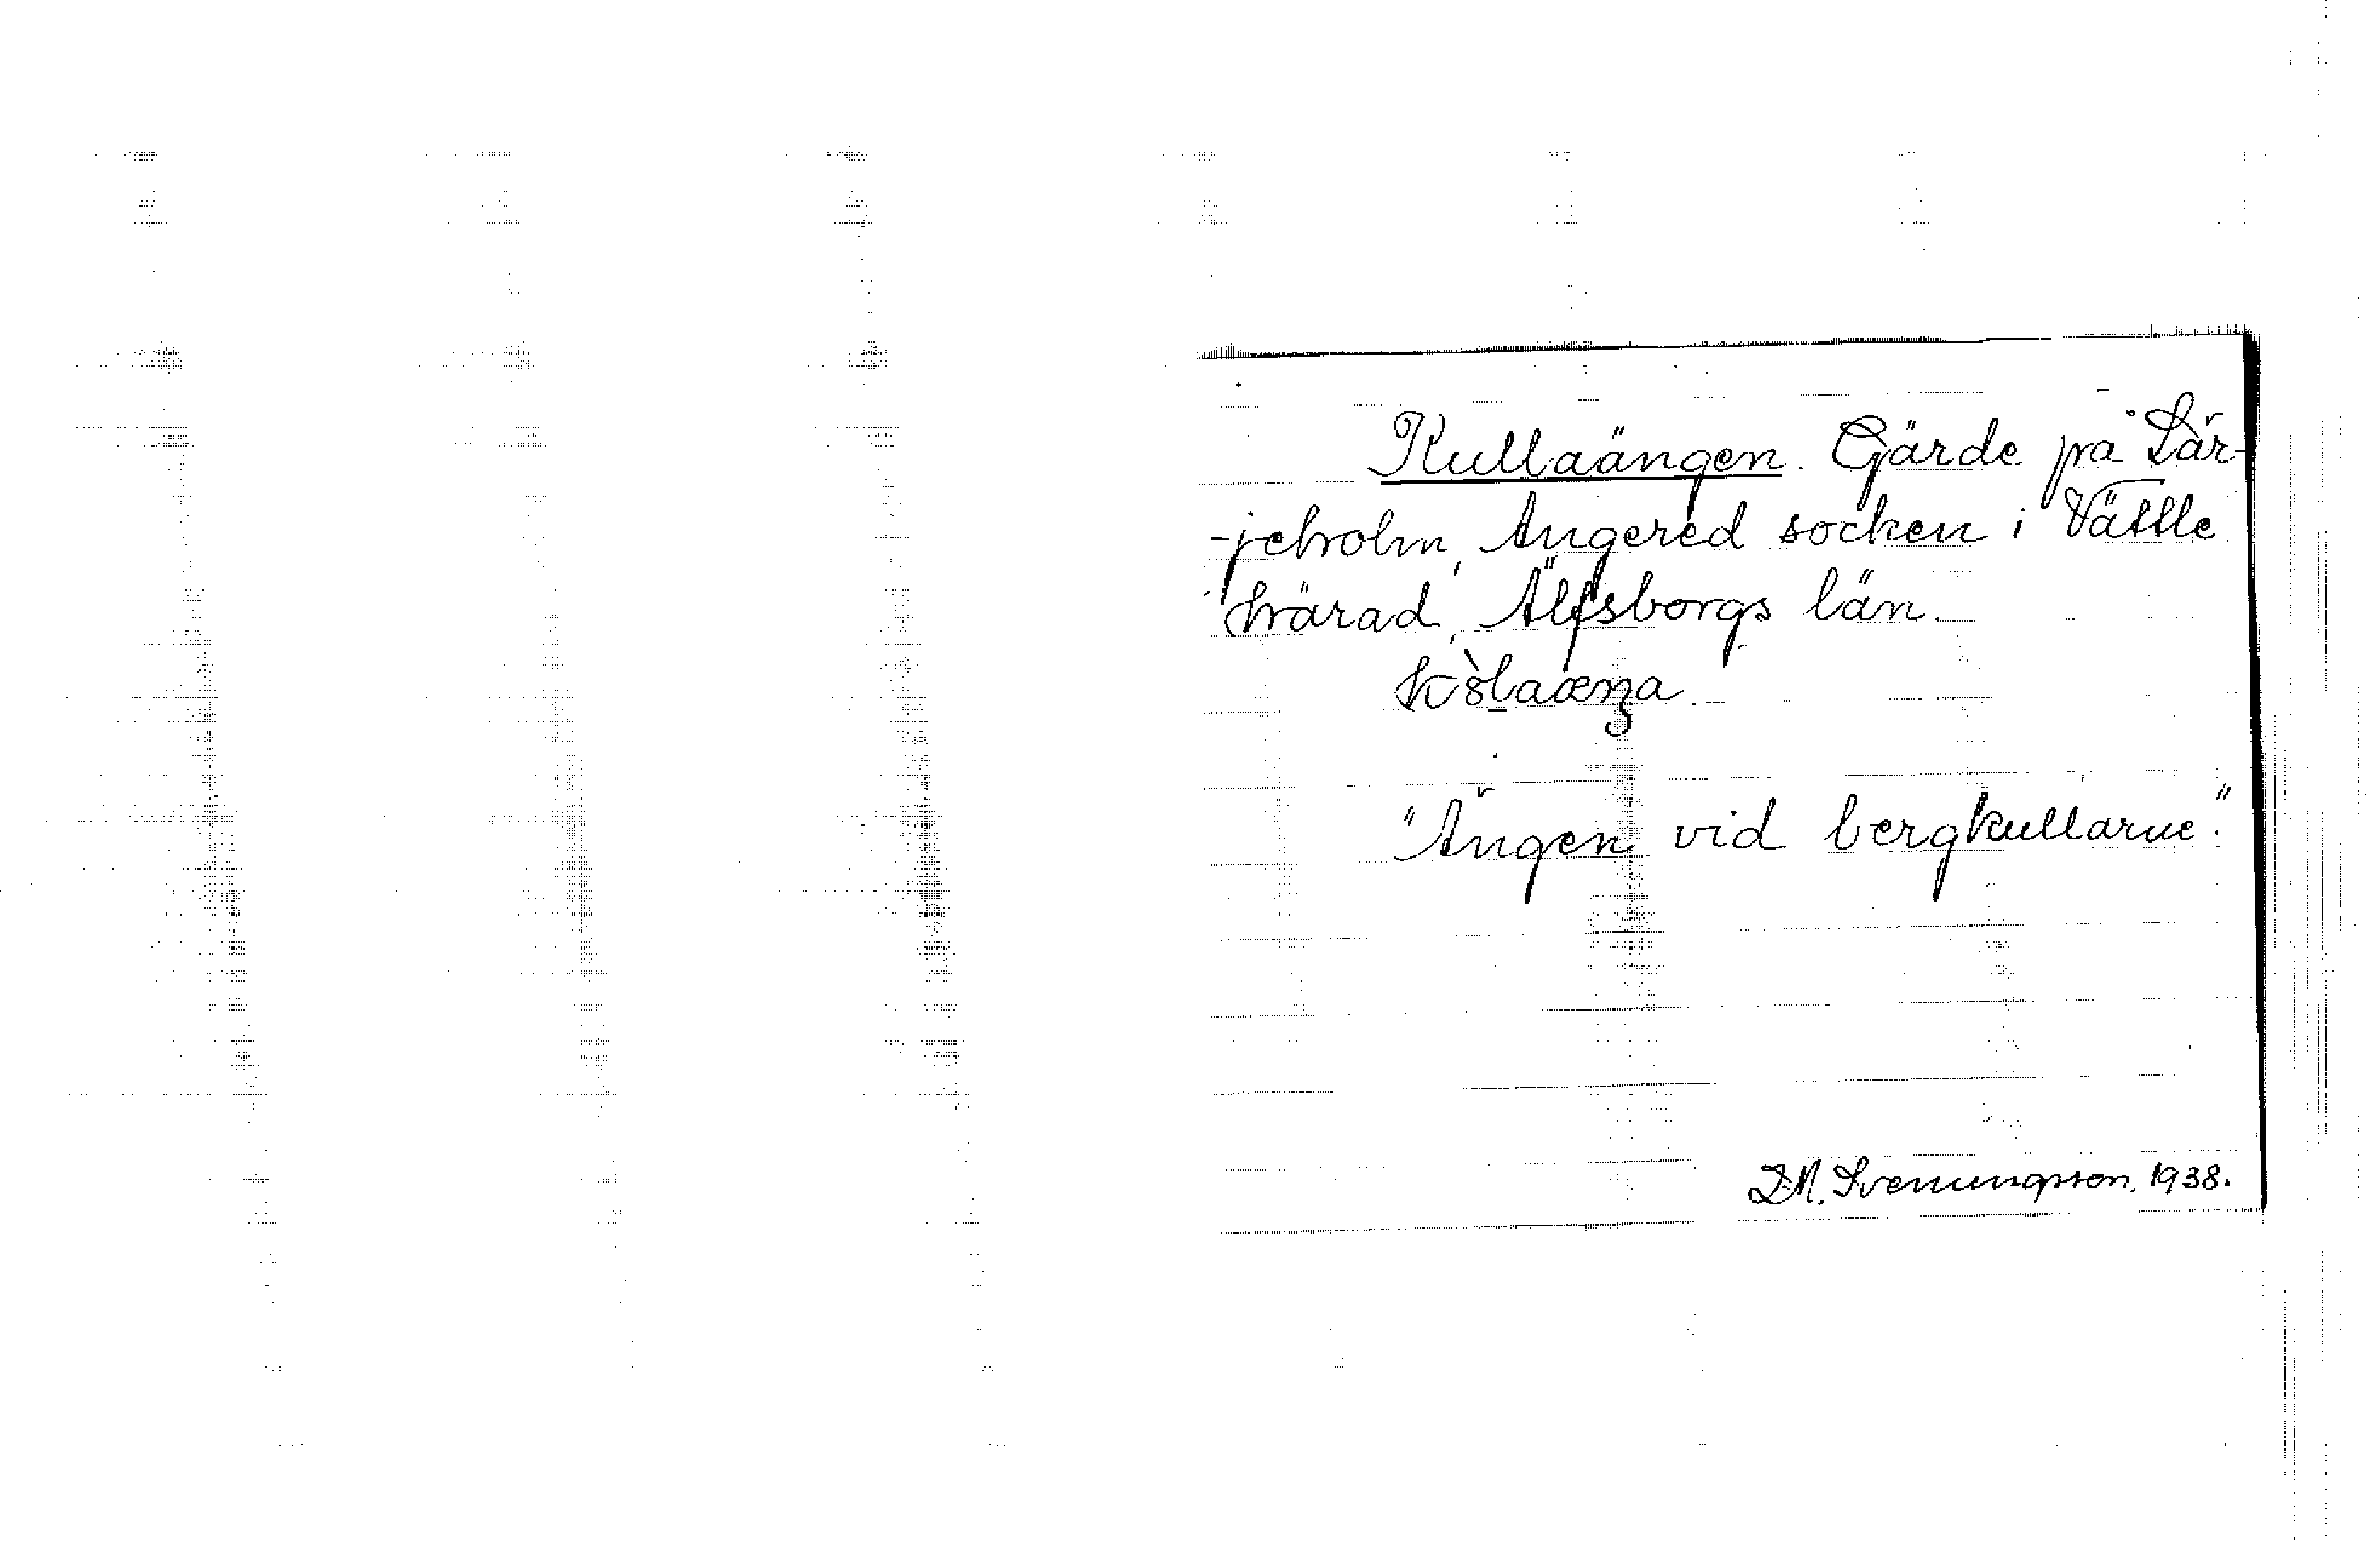 Kullaängen. Gärde på Lär-
-jeholm, Angered socken i Vättle
härad, Älfsborgs län.
"Ängen vid bergkullarne."
D.M. Svenungsson, 1938.